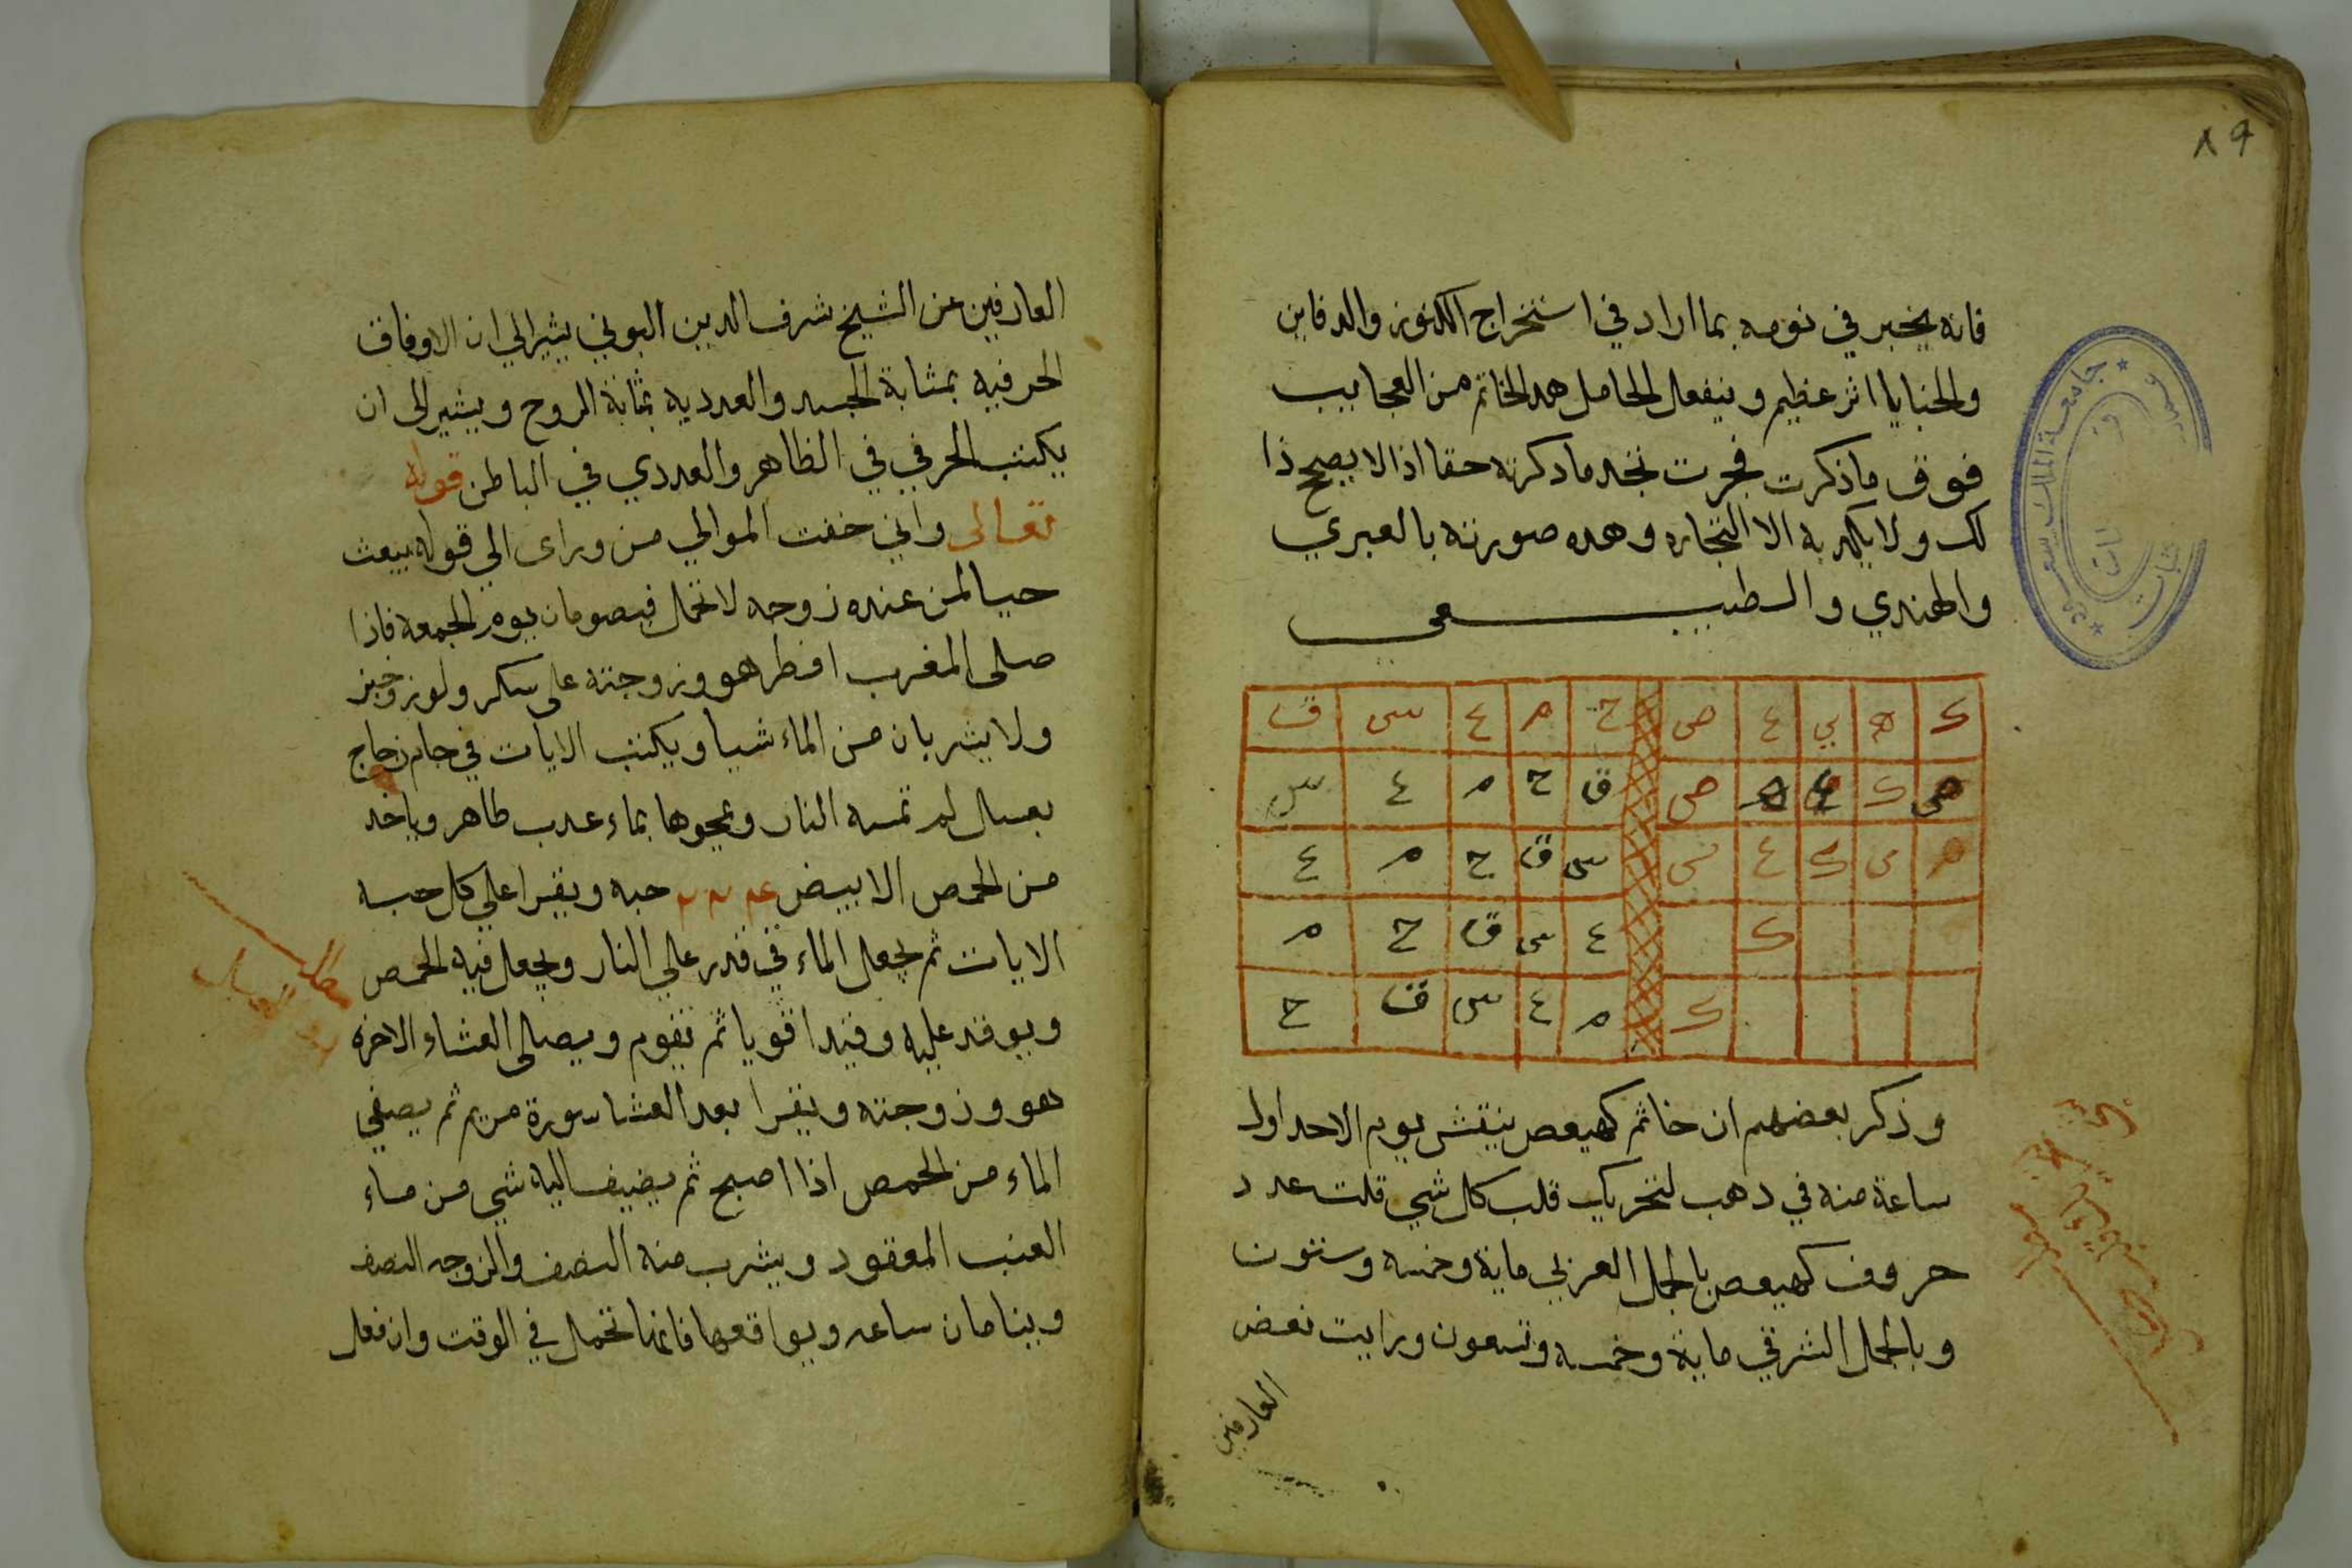 ٨٩
فانه يخبر في نومه بما اراد في استخراج الكنوز والدفاين
والخبايا اثر عظيم وينفعل لحامل هدا لخاتم من العجايب
فوق ما ذكرت فجرت تجد ما دكرته حقا اذ لا يصح ذا
لك ولا يكدبه الا التجاره وهده صورته بالعبري
والهندي والطبيعي
ك ه ي ع ص ح م ع س ق
ك ص ق ح م ع س
ه ي ك ع س ق ح م ع
ك ع س ق ح م
ك م ع س ق ح
وذكر بعضهم ان خاتم كهيعص ينقش يوم الاحد اول
ساعة منه في دهب لتحريك قلب كل شي قلت عدد
حروف كهيعص بالجمل العربي ماية وخمسه وستون
وبالجمل الشرقي ماية وخمسه وتسعون ورايت بعض
العارفين
جامعة الملك سعود
العارفين عن الشيخ شرف الدين البوني يشير الي ان الاوفاق
الحرفيه بمثابة الجسد والعدديه بمثابة الروح ويشير الى ان
يكتب الحرفي في الظاهر والعددي في الباطن قوله
تعالى واني خفت الموالي من وراى الي قوله يبعث
حيا لمن عنده زوجه لا تحمل فيصومان يوم الجمعه فاذا
صلى المغرب افطر هو وزوجته على سكر ولوز وخبز
ولا يشربان من الماء شيا ويكتب الايات في جام زجاج
بعسل لم تمسه النار ويمحوها بماء عدب طاهر وياخد
من الحمص الابيض حبه ويقرا علي كل حبه
الايات ثم يجعل الماء في قدر علي النار ويجعل فيه الحمص
ويوقد عليه وقيدا قويا ثم تقوم ويصلى العشاء الاخره
هو وزوجته ويقرا بعد العشا سورة مريم ثم يصفي
الماء من الحمص اذا اصبح ثم يضيف اليه شي من ماء
العنب المعقود ويشرب منه النصف والزوجه النصف
وينامان ساعه ويواقعها فانها تحمل في الوقت وان فعل